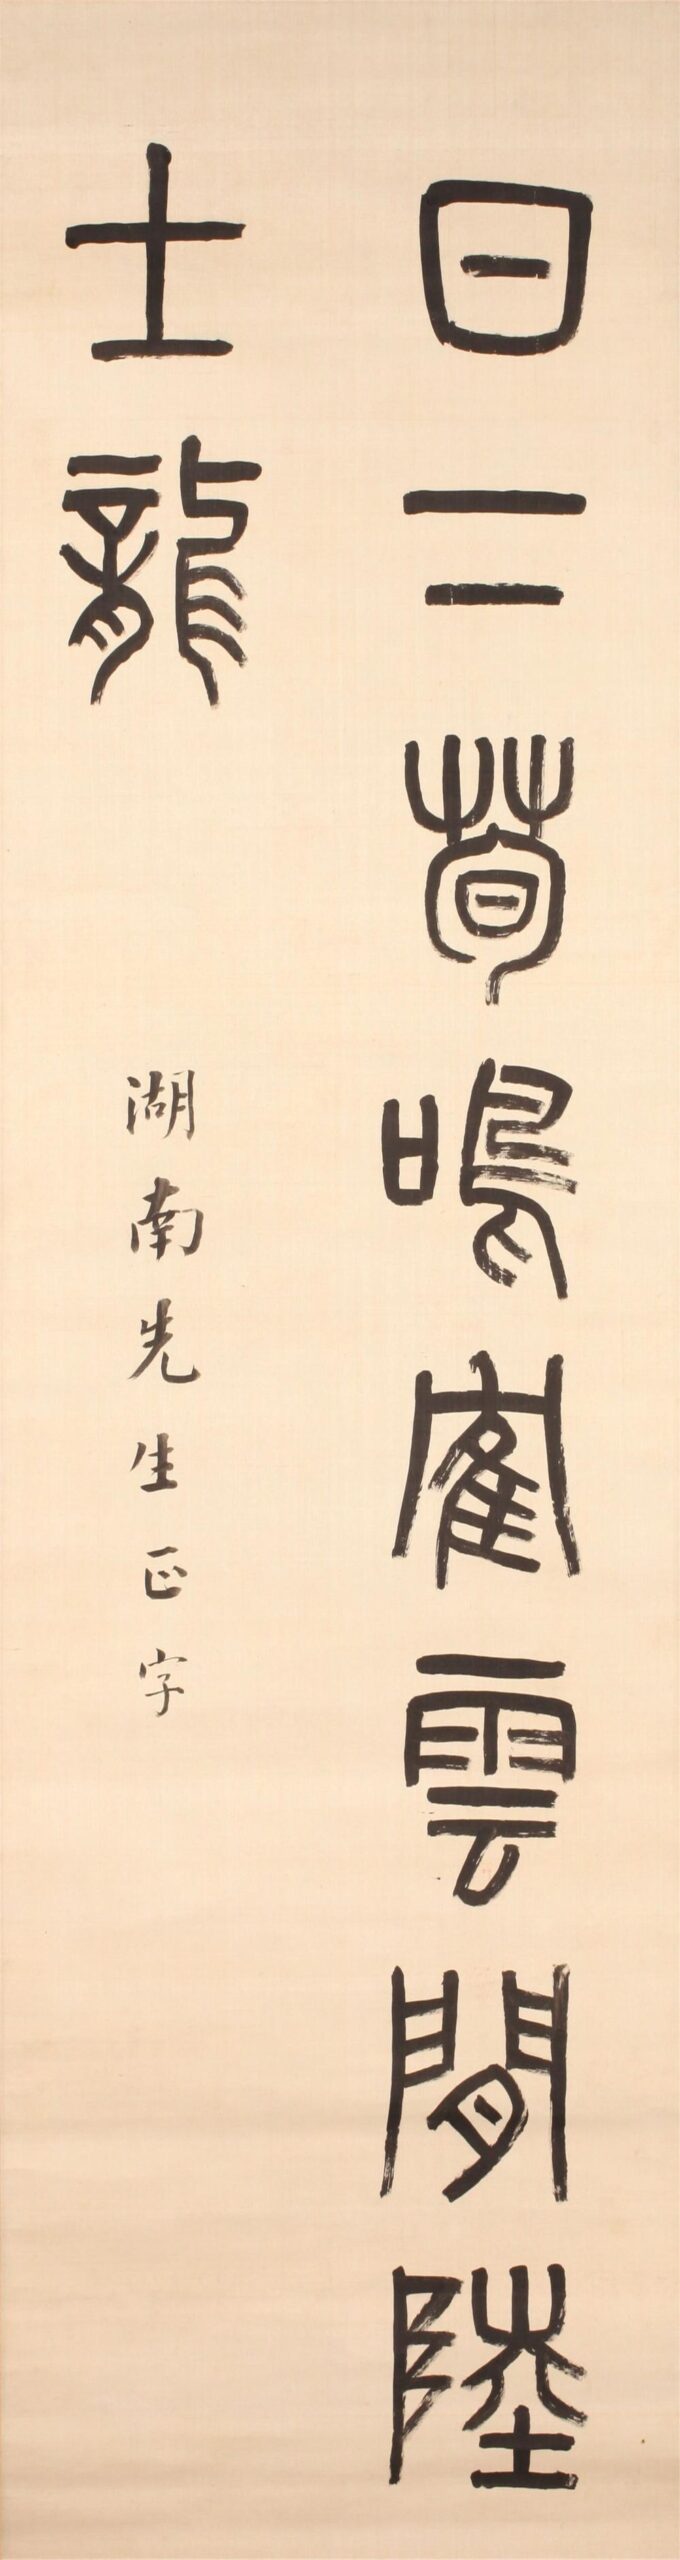 日下荀鳴隺雲閒陸
士龍
湖南先生正字